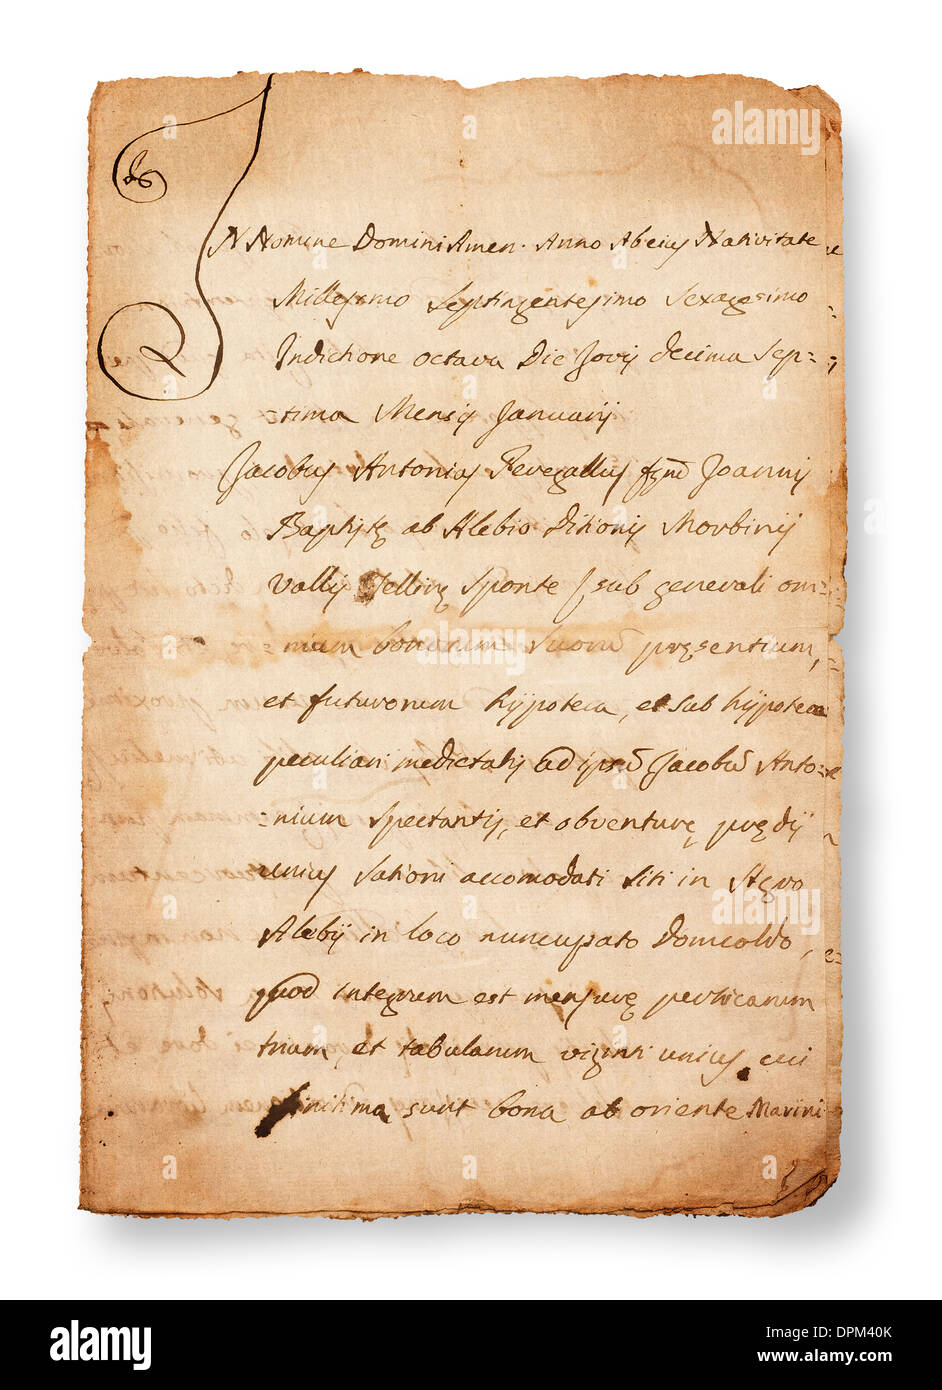 IN Nomine Domini Amen. Anno Ab eius Nativitate
Millesimo Septingentesimo Sexagesimo
Indictione octava Die Jovis decima Sep=
=tima Mensis Januarij
Jacobus Antonius Fevegallus Joannis
Baptistę ab Alebio Ditionis Morbinij
Vallis Tellinę Sponte sub generali om=
nium bonorum suorū pręsentium,
et futurorum hÿpoteca, et sub hÿpoteca
peculiari medietatis ad ipsū Jacobū Anto=
=nium spectantis, et obventurę prędij
unius sationi accomodati siti in Agro
Alebij in loco nuncupato Domcoldo,
quod integrum est mensurę perticarum
trium et tabularum viginti unius cui
finitima sunt bona ab oriente Marini
alamy
a
Image ID: DPM40K
www.alamy.com